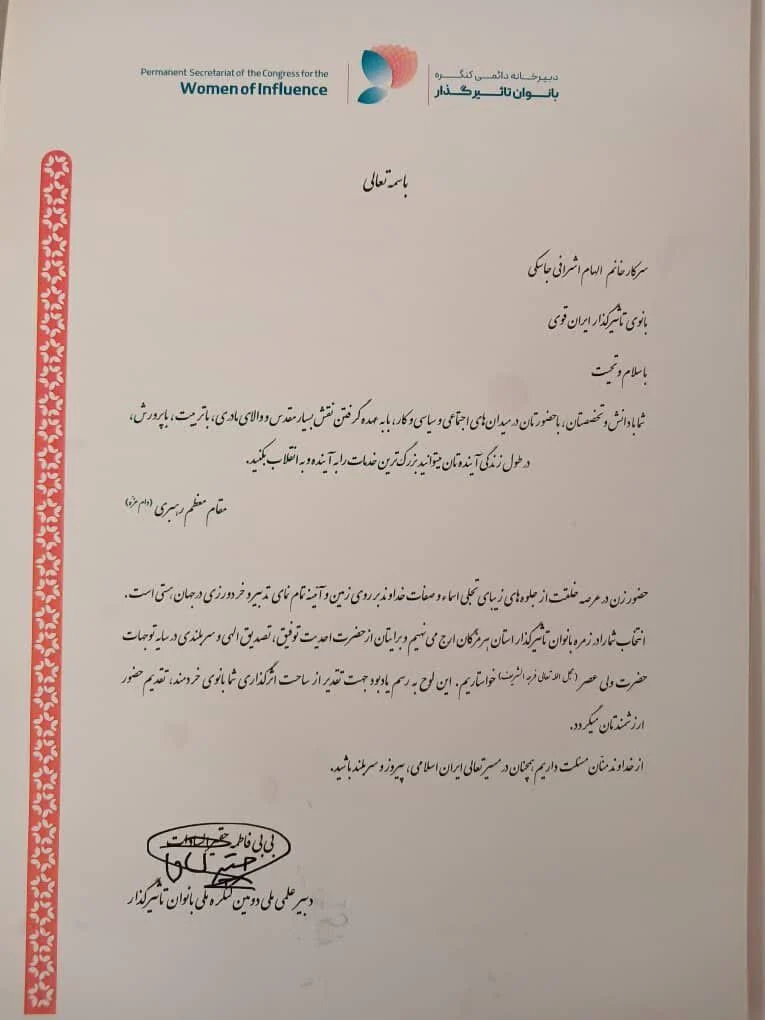 Permanent Secretariat of the Congress for the
Women of Influence
دبیرخانه دائمی کنگره
بانوان تاثیرگذار
باسمه تعالی
سرکار خانم الهام اشرافی جاسکی
بانوی تأثیرگذار ایران قوی
با سلام و تحیت
شما با دانش و تخصصتان، با حضورتان در میدان‌های اجتماعی و سیاسی و کار، با به عهده گرفتن نقش بسیار مقدس و والای مادری، با تربیت، با پرورش،
در طول زندگی آینده‌تان میتوانید بزرگ‌ترین خدمات را به آینده و به انقلاب بکنید.
مقام معظم رهبری (دام عزّه)
حضور زن در عرصه خلقت از جلوه‌های زیبای تجلی اسماء و صفات خداوند بر روی زمین و آئینه تمام نمای تدبیر و خردورزی در جهان هستی است.
انتخاب شما را در زمره بانوان تأثیرگذار استان هرمزگان ارج می‌نهیم و برایتان از حضرت احدیت توفیق، تصدیق الهی و سربلندی در سایه توجهات
حضرت ولی عصر (عجل الله تعالی فرجه الشریف) خواستاریم. این لوح به رسم یادبود جهت تقدیر از ساحت اثرگذاری شما بانوی خردمند، تقدیم حضور
ارزشمندتان میگردد.
از خداوند منّان مسئلت داریم همچنان در مسیر تعالی ایران اسلامی، پیروز و سربلند باشید.
بی بی فاطمه
دبیر علمی ملی دومین کنگره ملی بانوان تأثیرگذار